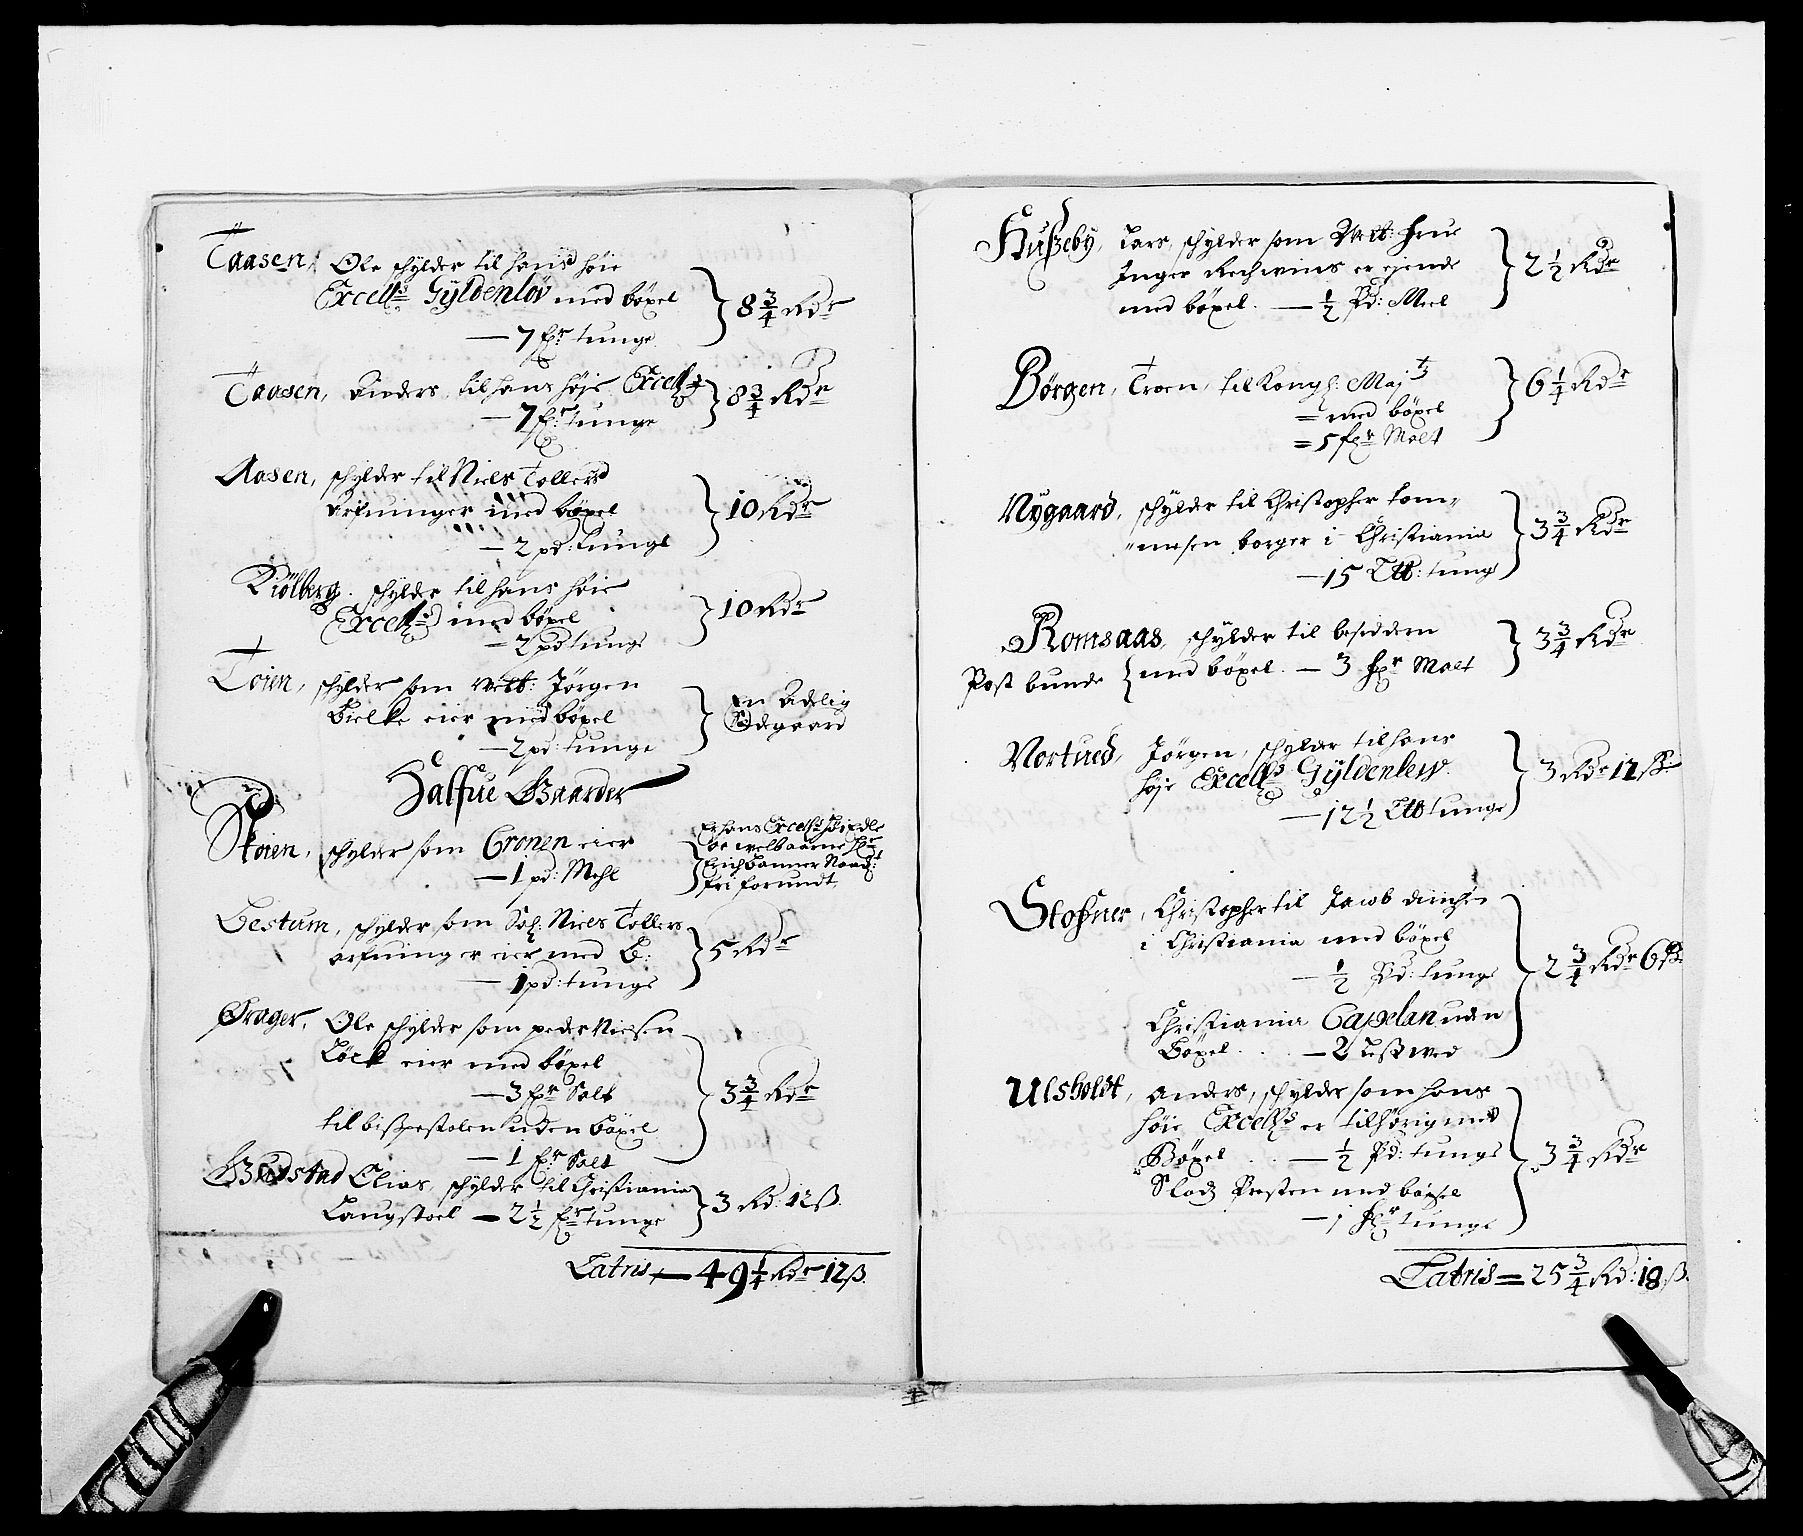 Taasen, Ole schylder til hans høie
Excell: Gyldenløv med bøxel
— 7 fr tunge } 8 3/4 Rdr
Taasen, Anders, til hans høje Excell:
— 7 fr: tunge } 8 3/4 Rdr
Aasen, schylder til Niels Tollers
Arfuinger med bøxel
— 2 pd: tunge } 10 Rdr
Kiølberg. schylder til hans høie
Excell: med bøxel
= 2 pd tunge } 10 Rdr
Tøien, schylder som Welb: Jørgen
Bielke eier med bøxel
— 2 pd: tunge } En Adelig
Sædegaard
Halfue Gaarder
Schøien, schylder som Cronen eier
— 1 pd: Mehl
Er hans Excell: høi Edle
oc welbaarne Hr
Erich Banner Naad:
fri forundt
Bestum, schylder som Sal: Niels Tollers
arfuinger eier med B:
— 1 pd: tunge } 5 Rdr
Grager, Ole schylder som peder Nielsen
Løck eier med bøxel
— 3 fr Salt
til bispestolen uden bøxel
— 1 fr Salt } 3 3/4 Rdr
Elias, schylder til Christiania
Laugstoel — 2 1/2 fr tunge } 3 Rd: 12 ß.
Latris — 49 1/4 Rdr 12 ß.
Hußeby, Lars, schylder som Welb: Frue
Inger Rechwins er ejende
med bøxel. — 1/2 Pd: Meel } 2 1/2 Rdr
Børgen, Troen, til Kongl: Majtz
= med bøxel
= 5 fr Malt } 6 1/4 Rdr
Nygaard, schylder til Christopher tom„
„mesen borger i Christiania
— 15 Lb: tung } 3 3/4 Rdr
Romsaas, schylder til besidderen
Post bunde { med bøxel. — 3 fr Malt } 3 3/4 Rdr
Nortued, Jørgen, schylder til hans
høje Excells Gyldenlew.
— 12 1/2 Lb tunge } 3 Rdr 12 ß.
Stoßner, Christopher til Jacob
i Christiania med bøxel
— 1/2 Pd: tunge
Christiania Capelan uden
Bøxel . . — 2 Leß wed } 2 3/4 Rdr 6 ß.
Ulsholdt, anders, schylder som hans
høie Excells er tilhørig med
Bøxel . . — 1/2 Pd: tunge
Slodz Presten med bøxel
— 1 fr tunge } 3 3/4 Rdr
Latris = 25 3/4 Rd: 18 ß.